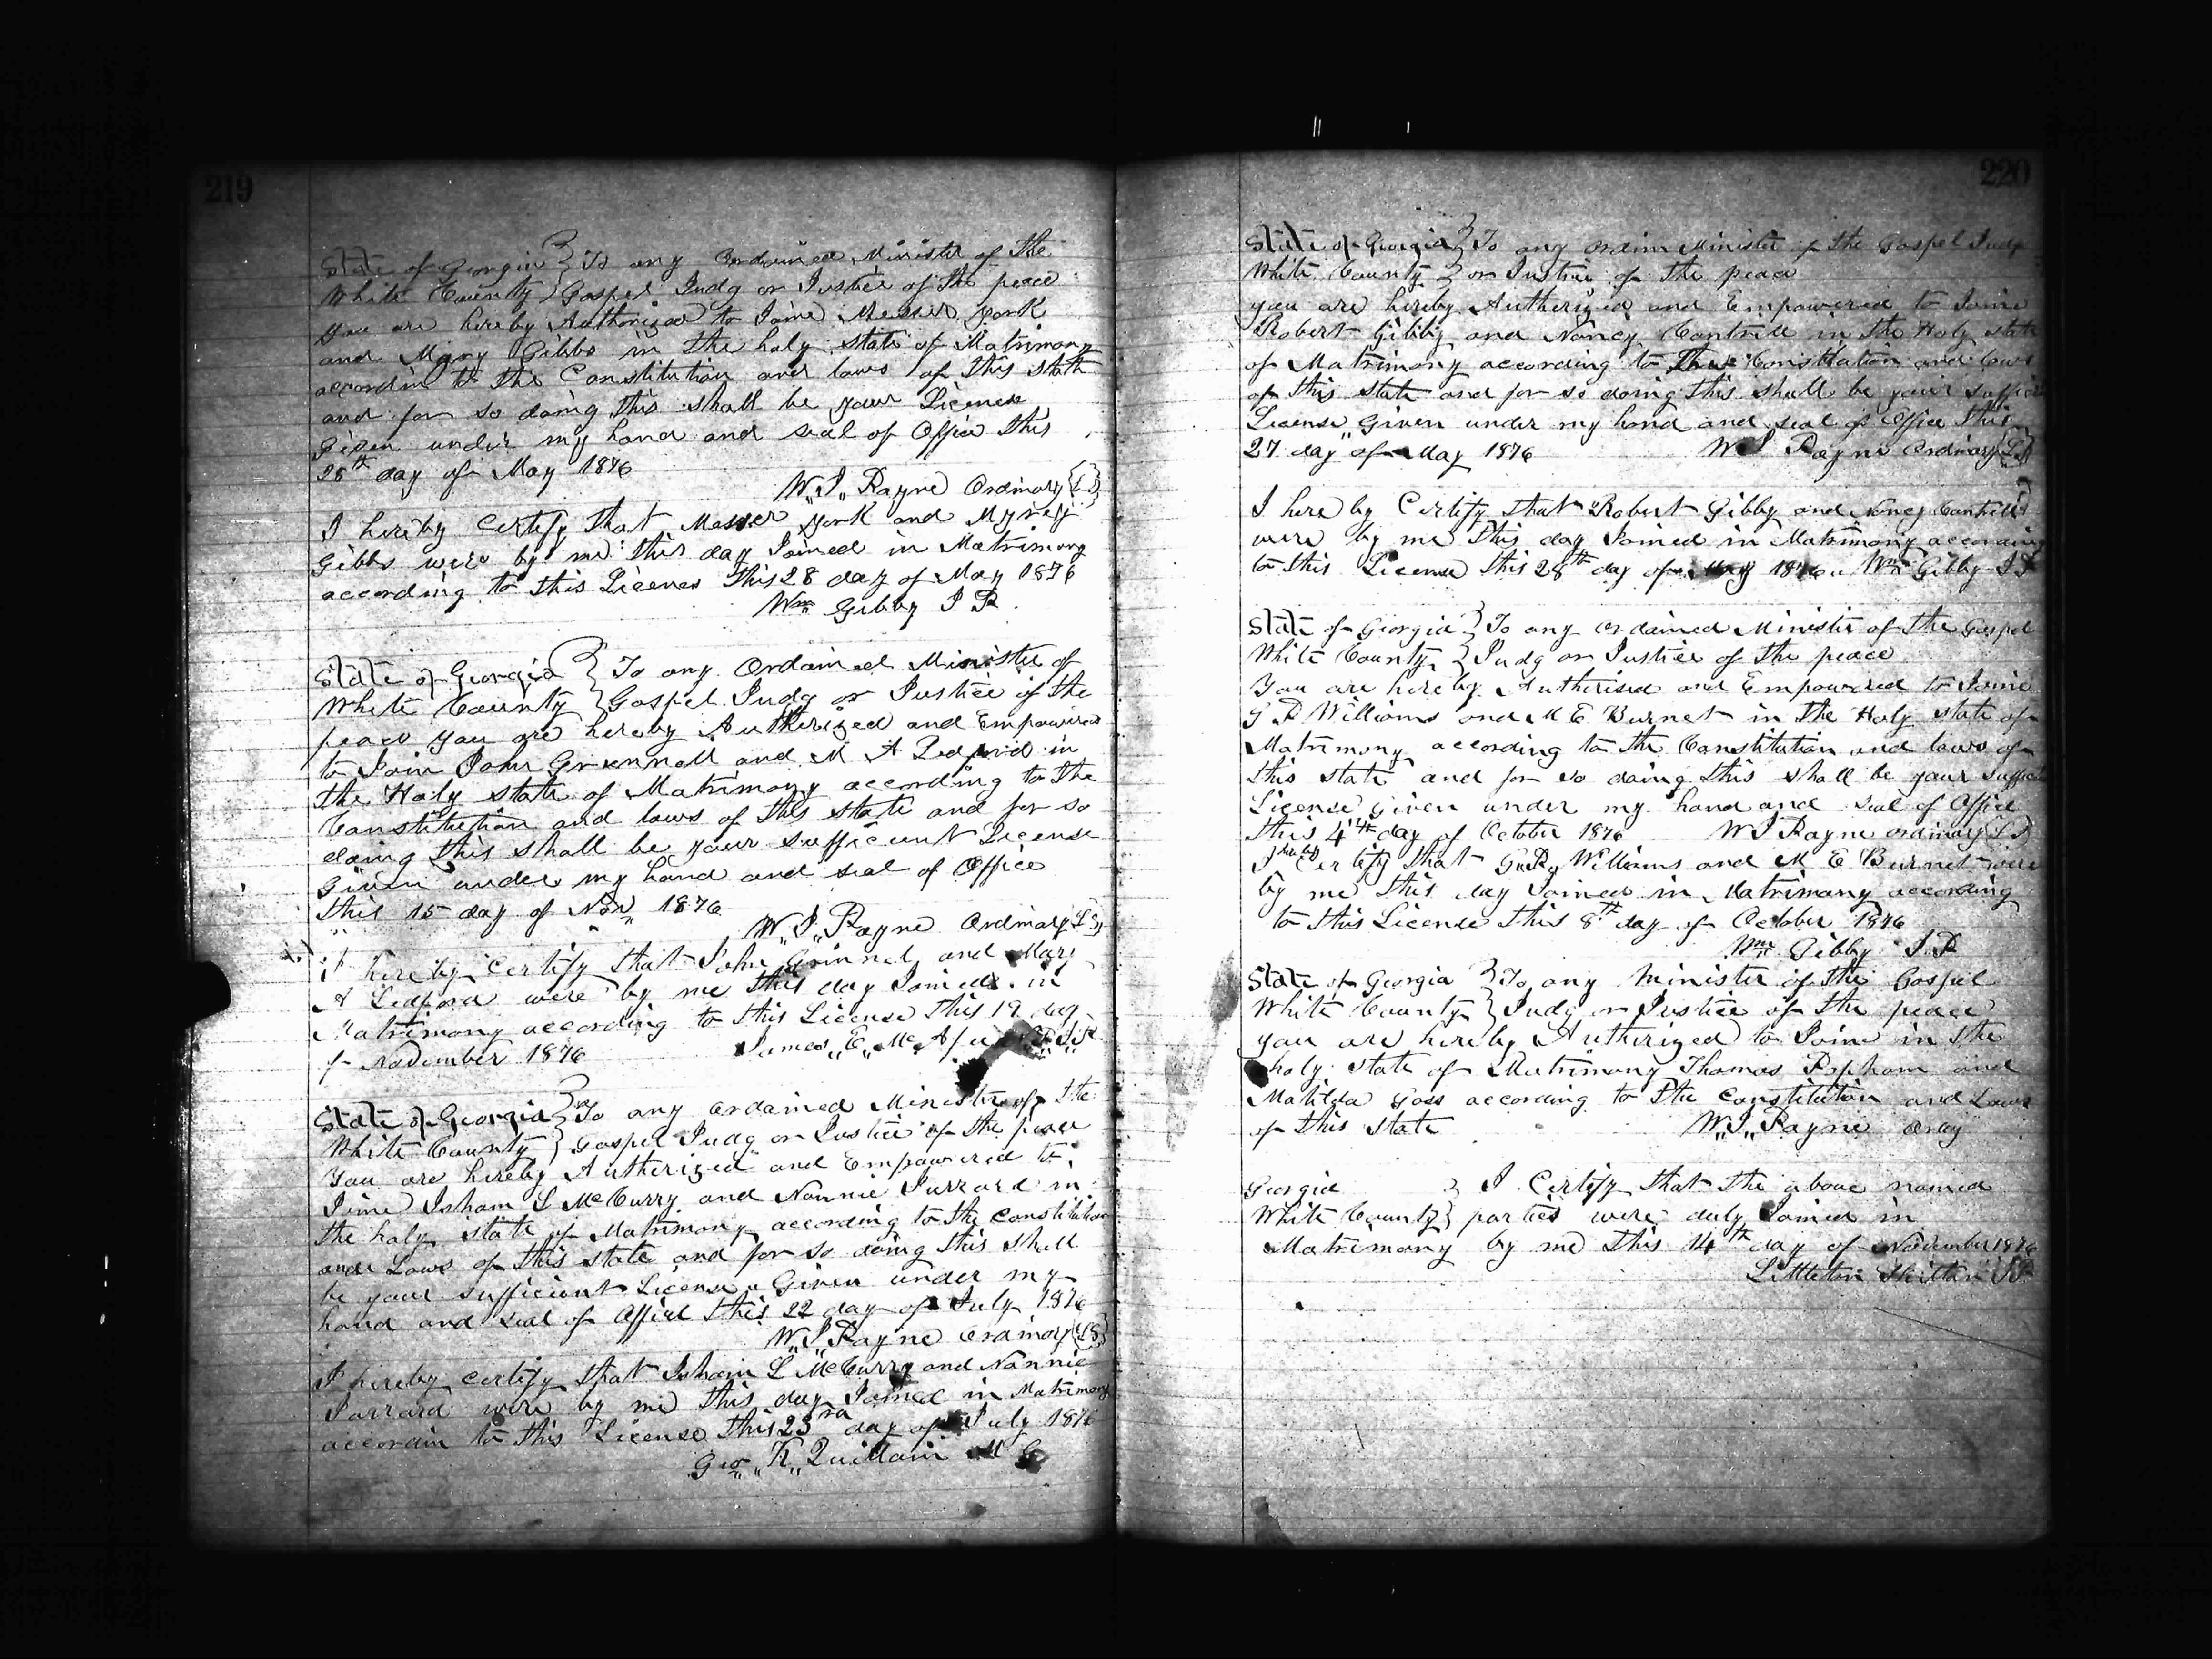 219
State of Georgia } To any Ordained Minister of the
White County } Gospel Judg or Justice of the peace
you are hereby Authorized to Joine Messer York
and Mary Gibbs in the holy state of Matrimony
accordin to the Constitution and laws of this state
and for so doing this shall be your License
Given under my hand and seal of Office this
28th day of May 1876
W.J. Rayne Ordinary {LS}
I hereby Certify that Messer York and
Gibbs were by me this day Joined in Matrimony
according to this License this 28 day of May 1876
Wm Gibby J P
State of Georgia } To any Ordained Minister of
White County } Gospel Judg or Justice of the
peace you are hereby Autherized and Empowired
to Join John Grennell and M A Ledford in
the Holy state of Matrimony according to the
Constitution and laws of this state and for so
doing this shall be your sufficient License
Given under my hand and seal of Office
this 15 day of Nov 1876
W.J. Rayne Ordinary {LS}
I hereby Certify that John Grinnel and Mary
A Ledford were by me this day Joined in
Matrimony according to this License this 19 day
of November 1876 James E. McAfee
State of Georgia } To any ordained Minister of the
White County } Gospel Judg or Justice of the peace
You are hereby Autherized and Empowered to
Joine Isham L McCurry and Nannie Jarrard in
the holy state of Matrimony according to the Constitution
and Laws of this state and for so doing this shall
be your sufficient License Given under my
hand and seal of Office this 22 day of July 1876
W.J. Rayne Ordinary {LS}
I hereby certify that Isham L McCurry and Nannie
Jarrard were by me this day Joined in Matrimony
accordin to this License this 23rd day of July 1876
Geo. K. Quillain M G
220
State of Georgia } To any Ordain Minister of the Gospel Judg
White County } or Justice of the peace
you are hereby Autherized and Empowered to Joine
Robert Gibby and Nancy Cantrell in the Holy state
of Matrimony according to the Constitution and laws
of this state and for so doing this shall be your suffici
License Given under my hand and seal of Office this
27 day of May 1876 W J Rayne Ordinary {LS}
I here by Certify that Robert Gibby and Nancy Cantrell
were by me this day Joined in Matrimony according
to this License this 28th day of May 1876 Wm Gibby J P
State of Georgia } To any ordained Minister of the Gospel
White County } Judg or Justice of the peace
You are hereby Autherised and Empowered to Joine
G P Williams and M E Burnet in the Holy state of
Matrimony according to the Constitution and laws of
this state and for so doing this shall be your suffici
License given under my hand and seal of Office
this 4th day of October 1876 W J Rayne ordinary {LS}
I hereby Certify that G.P. Williams and M E Burnet were
by me this day Joined in Matrimony according
to this License this 8th day of October 1876
Wm Gibby J P
State of Georgia } To any Minister of the Gospel
White County } Judg or Justice of the peace
you are hereby Autherized to Joine in the
holy state of Matrimony Thomas Popham and
Matilda Goss according to the Constitution and Laws
of this state W.J. Rayne ordy
Georgia } I Certify that the above named
White County } parties were duly Joined in
Matrimony by me this 14th day of November 1876
Littleton Shelton JP